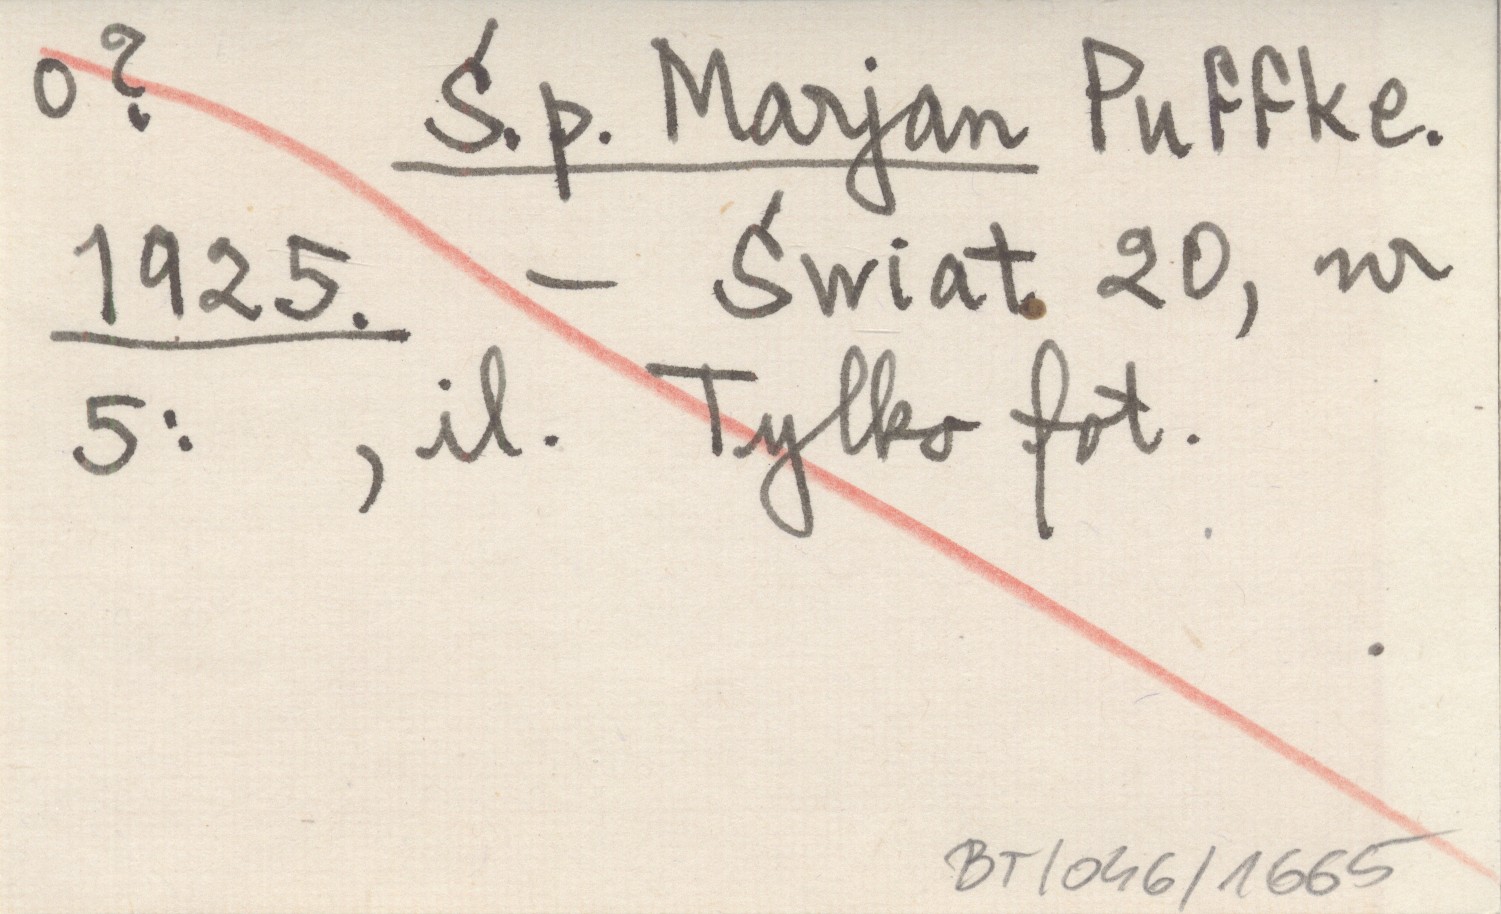 o? Ś.p. Marjan Puffke.
1925. – Świat. 20, nr
5: , il. Tylko fot.
BT/046/1665